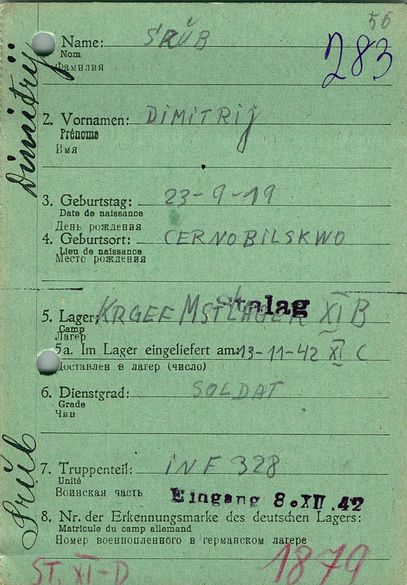 56
283
Name: SRŮB
Nom
Фамилия
Dimitrij
2. Vornamen: DIMITRIJ
Prénoms
Имя
3. Geburtstag: 23-9-19
Date de naissance
День рождения
4. Geburtsort: CERNOBILSKWO
Lieu de naissance
Место рождения
Stalag
5. Lager: KRGEF MSTLAGER XI B
Camp
Лагерь
5a. Im Lager eingeliefert am: 13-11-42 XI C
Доставлен в лагер (число)
6. Dienstgrad: SOLDAT
Grade
Чин
Srŭb
7. Truppenteil: INF 328
Unité
Воинская часть
Eingang 8. XII. 42
8. Nr. der Erkennungsmarke des deutschen Lagers:
Matricule du camp allemand
Номер военнопленного в германском лагере
ST. XI-D
1879